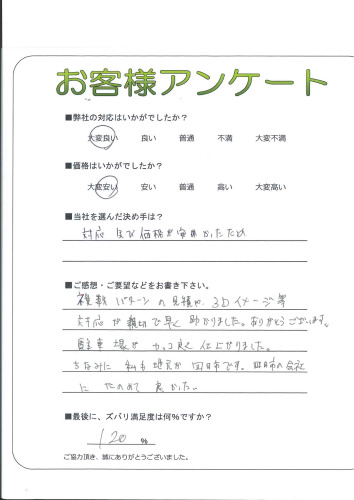 お客様アンケート
■弊社の対応はいかがでしたか？
大変良い 良い 普通 不満 大変不満
■価格はいかがでしたか？
大変安い 安い 普通 高い 大変高い
■当社を選んだ決め手は？
対応及び価格が安かったため
■ご感想・ご要望などをお書き下さい。
複数パターンの見積や、3Dイメージ等
対応が親切で早く助かりました。ありがとうございます。
駐車場がカッコ良く仕上がりました。
ちなみに私も地元が四日市です。四日市の会社
にたのめて良かった。
■最後に、ズバリ満足度は何％ですか？
120 %
ご協力頂き、誠にありがとうございました。